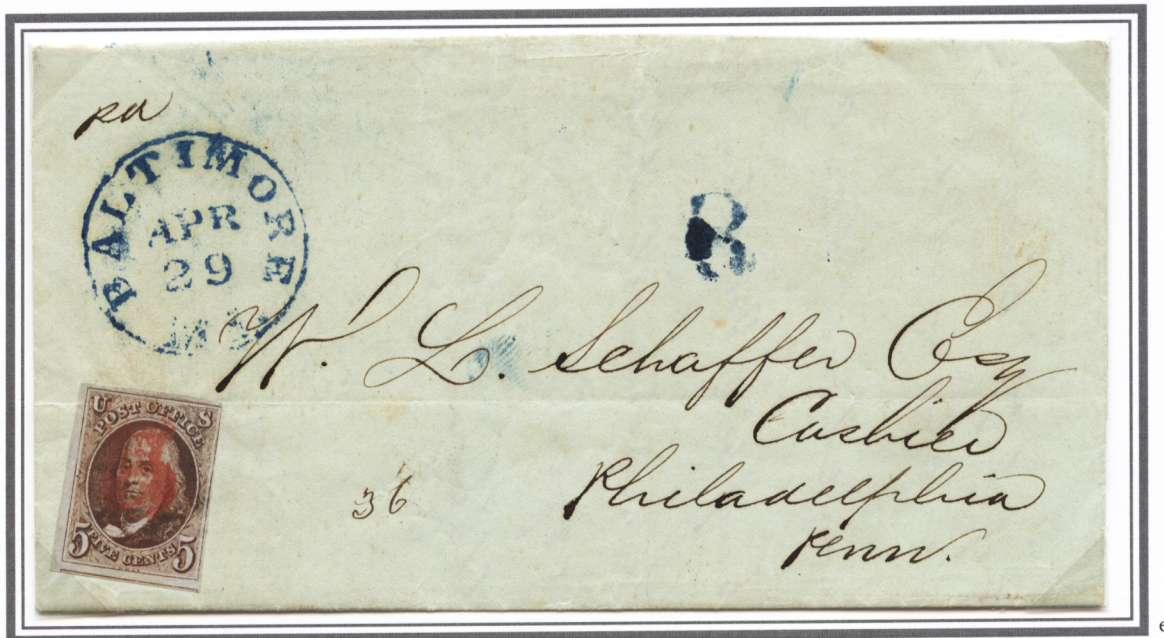 pd
BALTIMORE
APR
29
Md
8
W. L. Schaffer Esq
Cashier
Philadelphia
Penn.
36
U S
POST OFFICE
5 FIVE CENTS 5
e